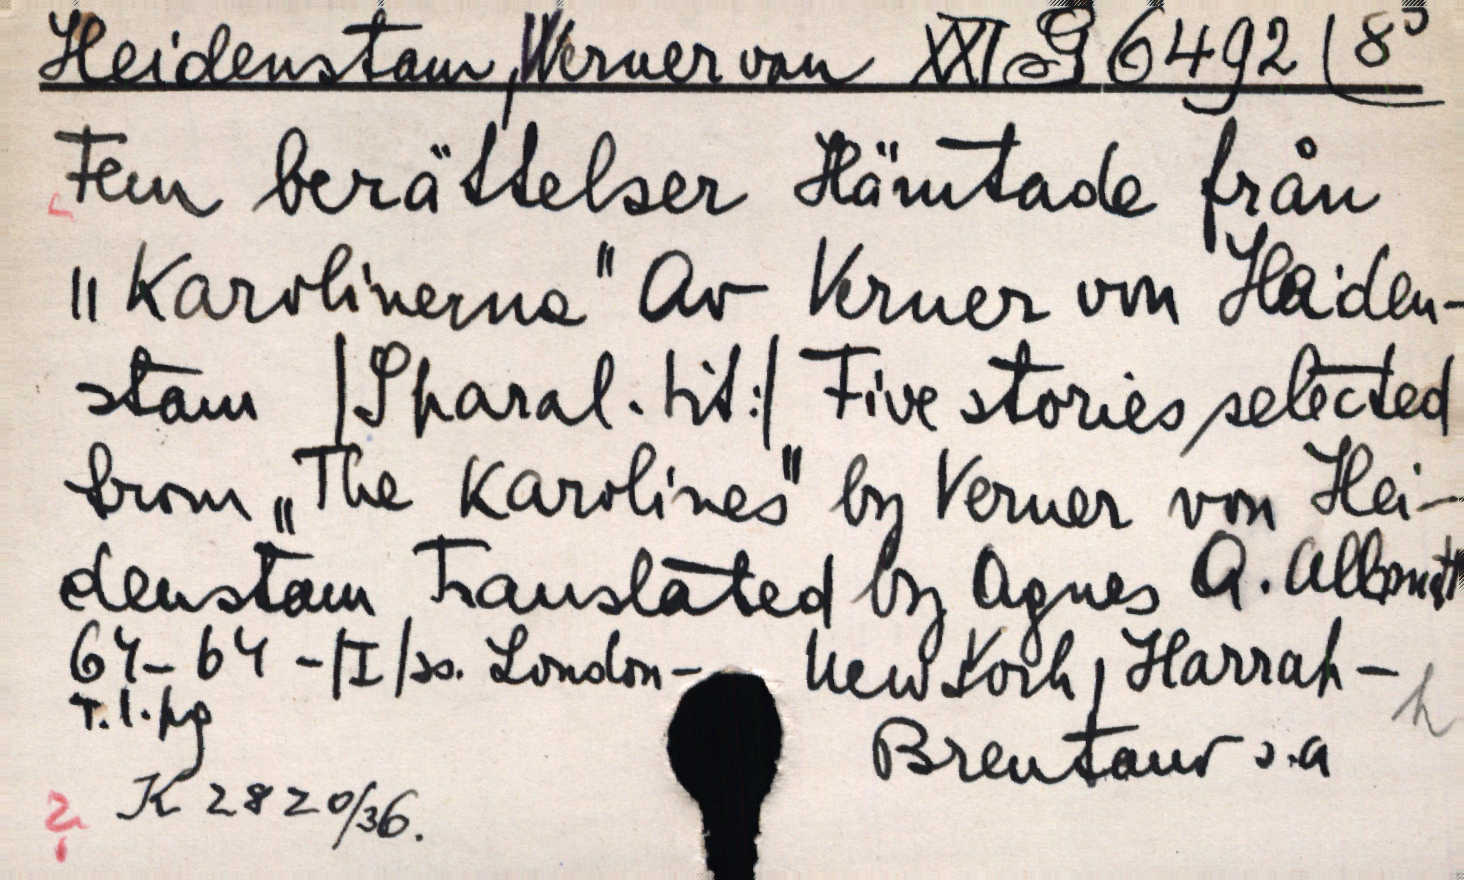 Heidenstam, Werner von XXI G 6492 (8°
Fem berättelser Hämtade från
„Karolinerna" Av Verner von Heiden-
stam |Sparal. tit:| Five stories, selected
from „The Karolines" by Verner von Hei-
denstam Translated by Agnes A.
64-64 -|I|ss. London- New York, Harrap-
T.l.pg
Brentano s.a
K 2820/36.